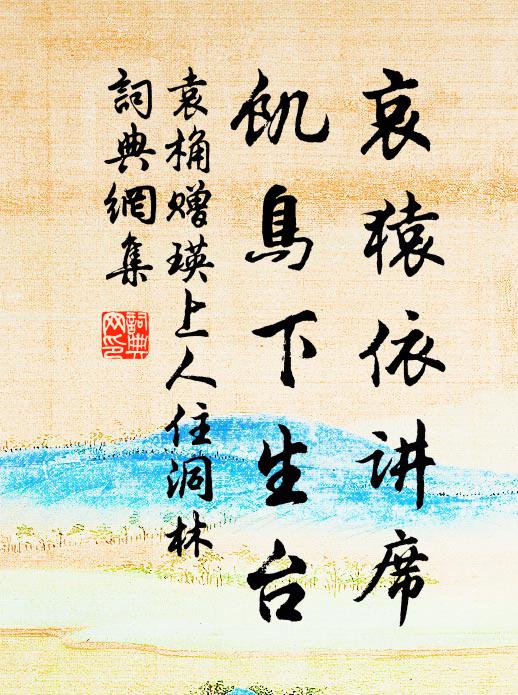 哀猿依讲席
飢鳥下生台
袁桷赠瑛上人住洞林
詞典網集
詞典
网印